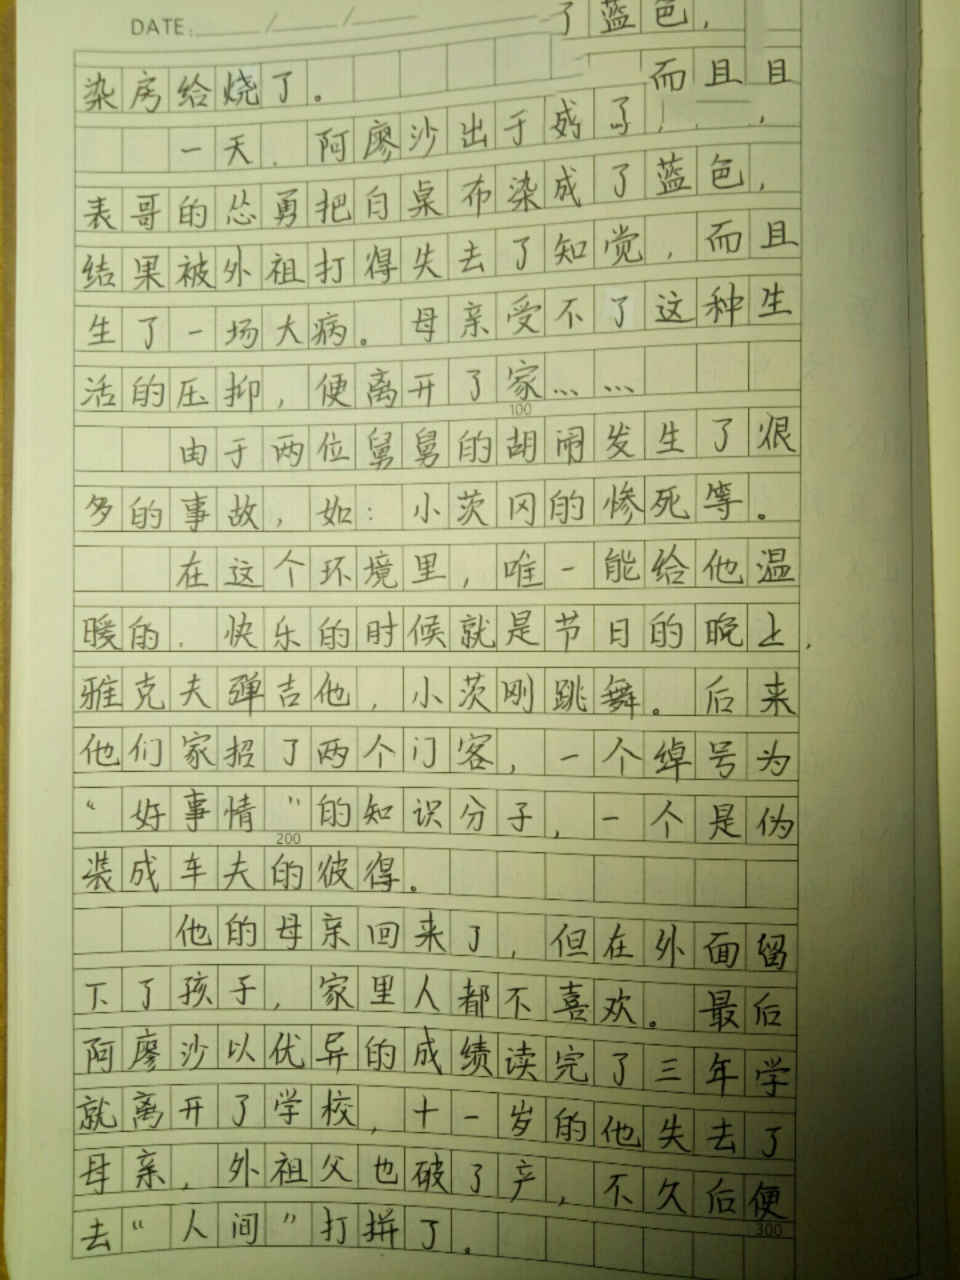 DATE:
了蓝色，
染房给烧了。
而且且
一天，阿廖沙出于好了！，
表哥的怂勇把白桌布染成了蓝色，
结果被外祖打得失去了知觉，而且
生了一场大病。母亲受不了这种生
活的压抑，便离开了家……
100
由于两位舅舅的胡闹发生了很
多的事故，如：小茨冈的惨死等。
在这个环境里，唯一能给他温
暖的．快乐的时候就是节日的晚上，
雅克夫弹吉他，小茨刚跳舞。后来
他们家招了两个门客，一个绰号为
“好事情”的知识分子，一个是伪
200
装成车夫的彼得。
他的母亲回来了，但在外面留
下了孩子，家里人都不喜欢。最后
阿廖沙以优异的成绩读完了三年学
就离开了学校，十一岁的他失去了
母亲，外祖父也破了产，不久后便
300
去“人间”打拼了。